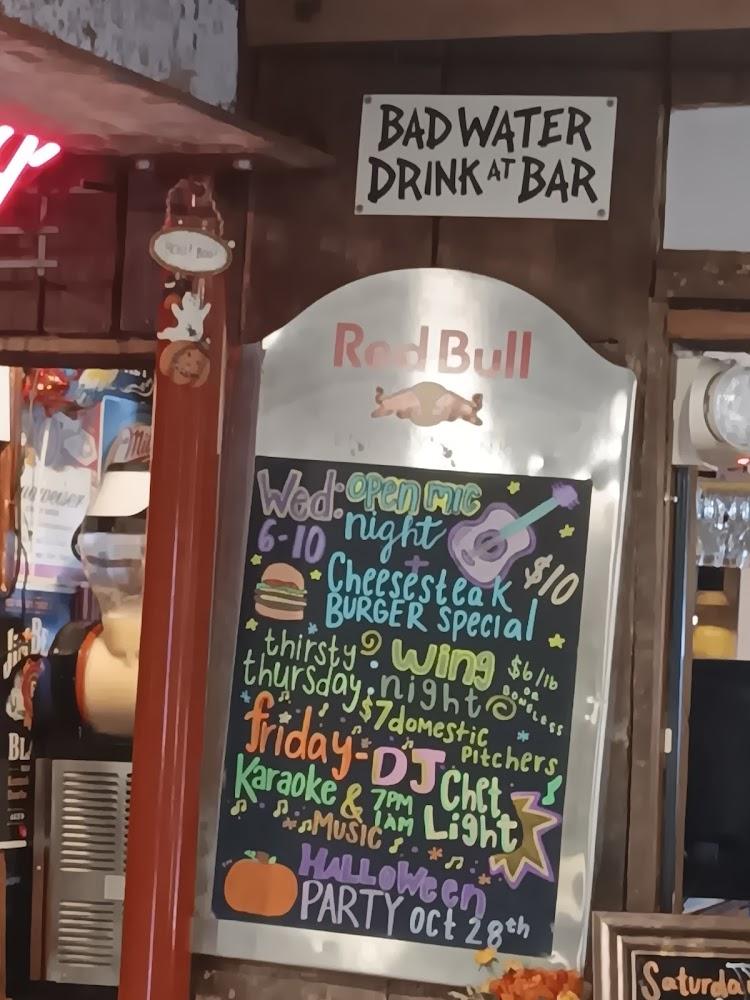 BAD WATER
DRINK AT BAR
Red Bull
Wed: open mic
6-10 night
+
$10
Cheesesteak
BURGER special
thirsty wing $6/lb
thursday: night or
BONELESS
$7 domestic
Pitchers
friday- DJ
Karaoke & 7PM Chet
1AM Light
MUSIC
HALLOWeen
PARTY Oct 28th
Saturda